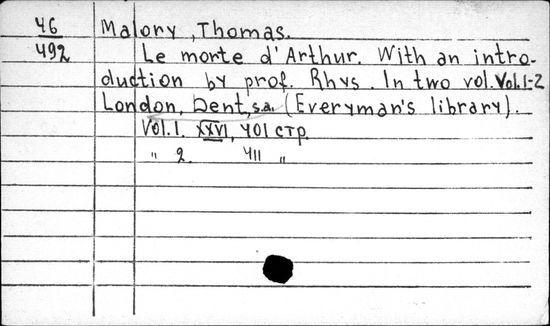 46 Malory, Thomas.
492 Le morte d'Arthur. With an intro-
duction by prof. Rhys. In two vol. Vol.1-2
London, Dent, s.a. (Everyman's library).
Vol.1. XXVI, 401 стр.
" 2. 411 "